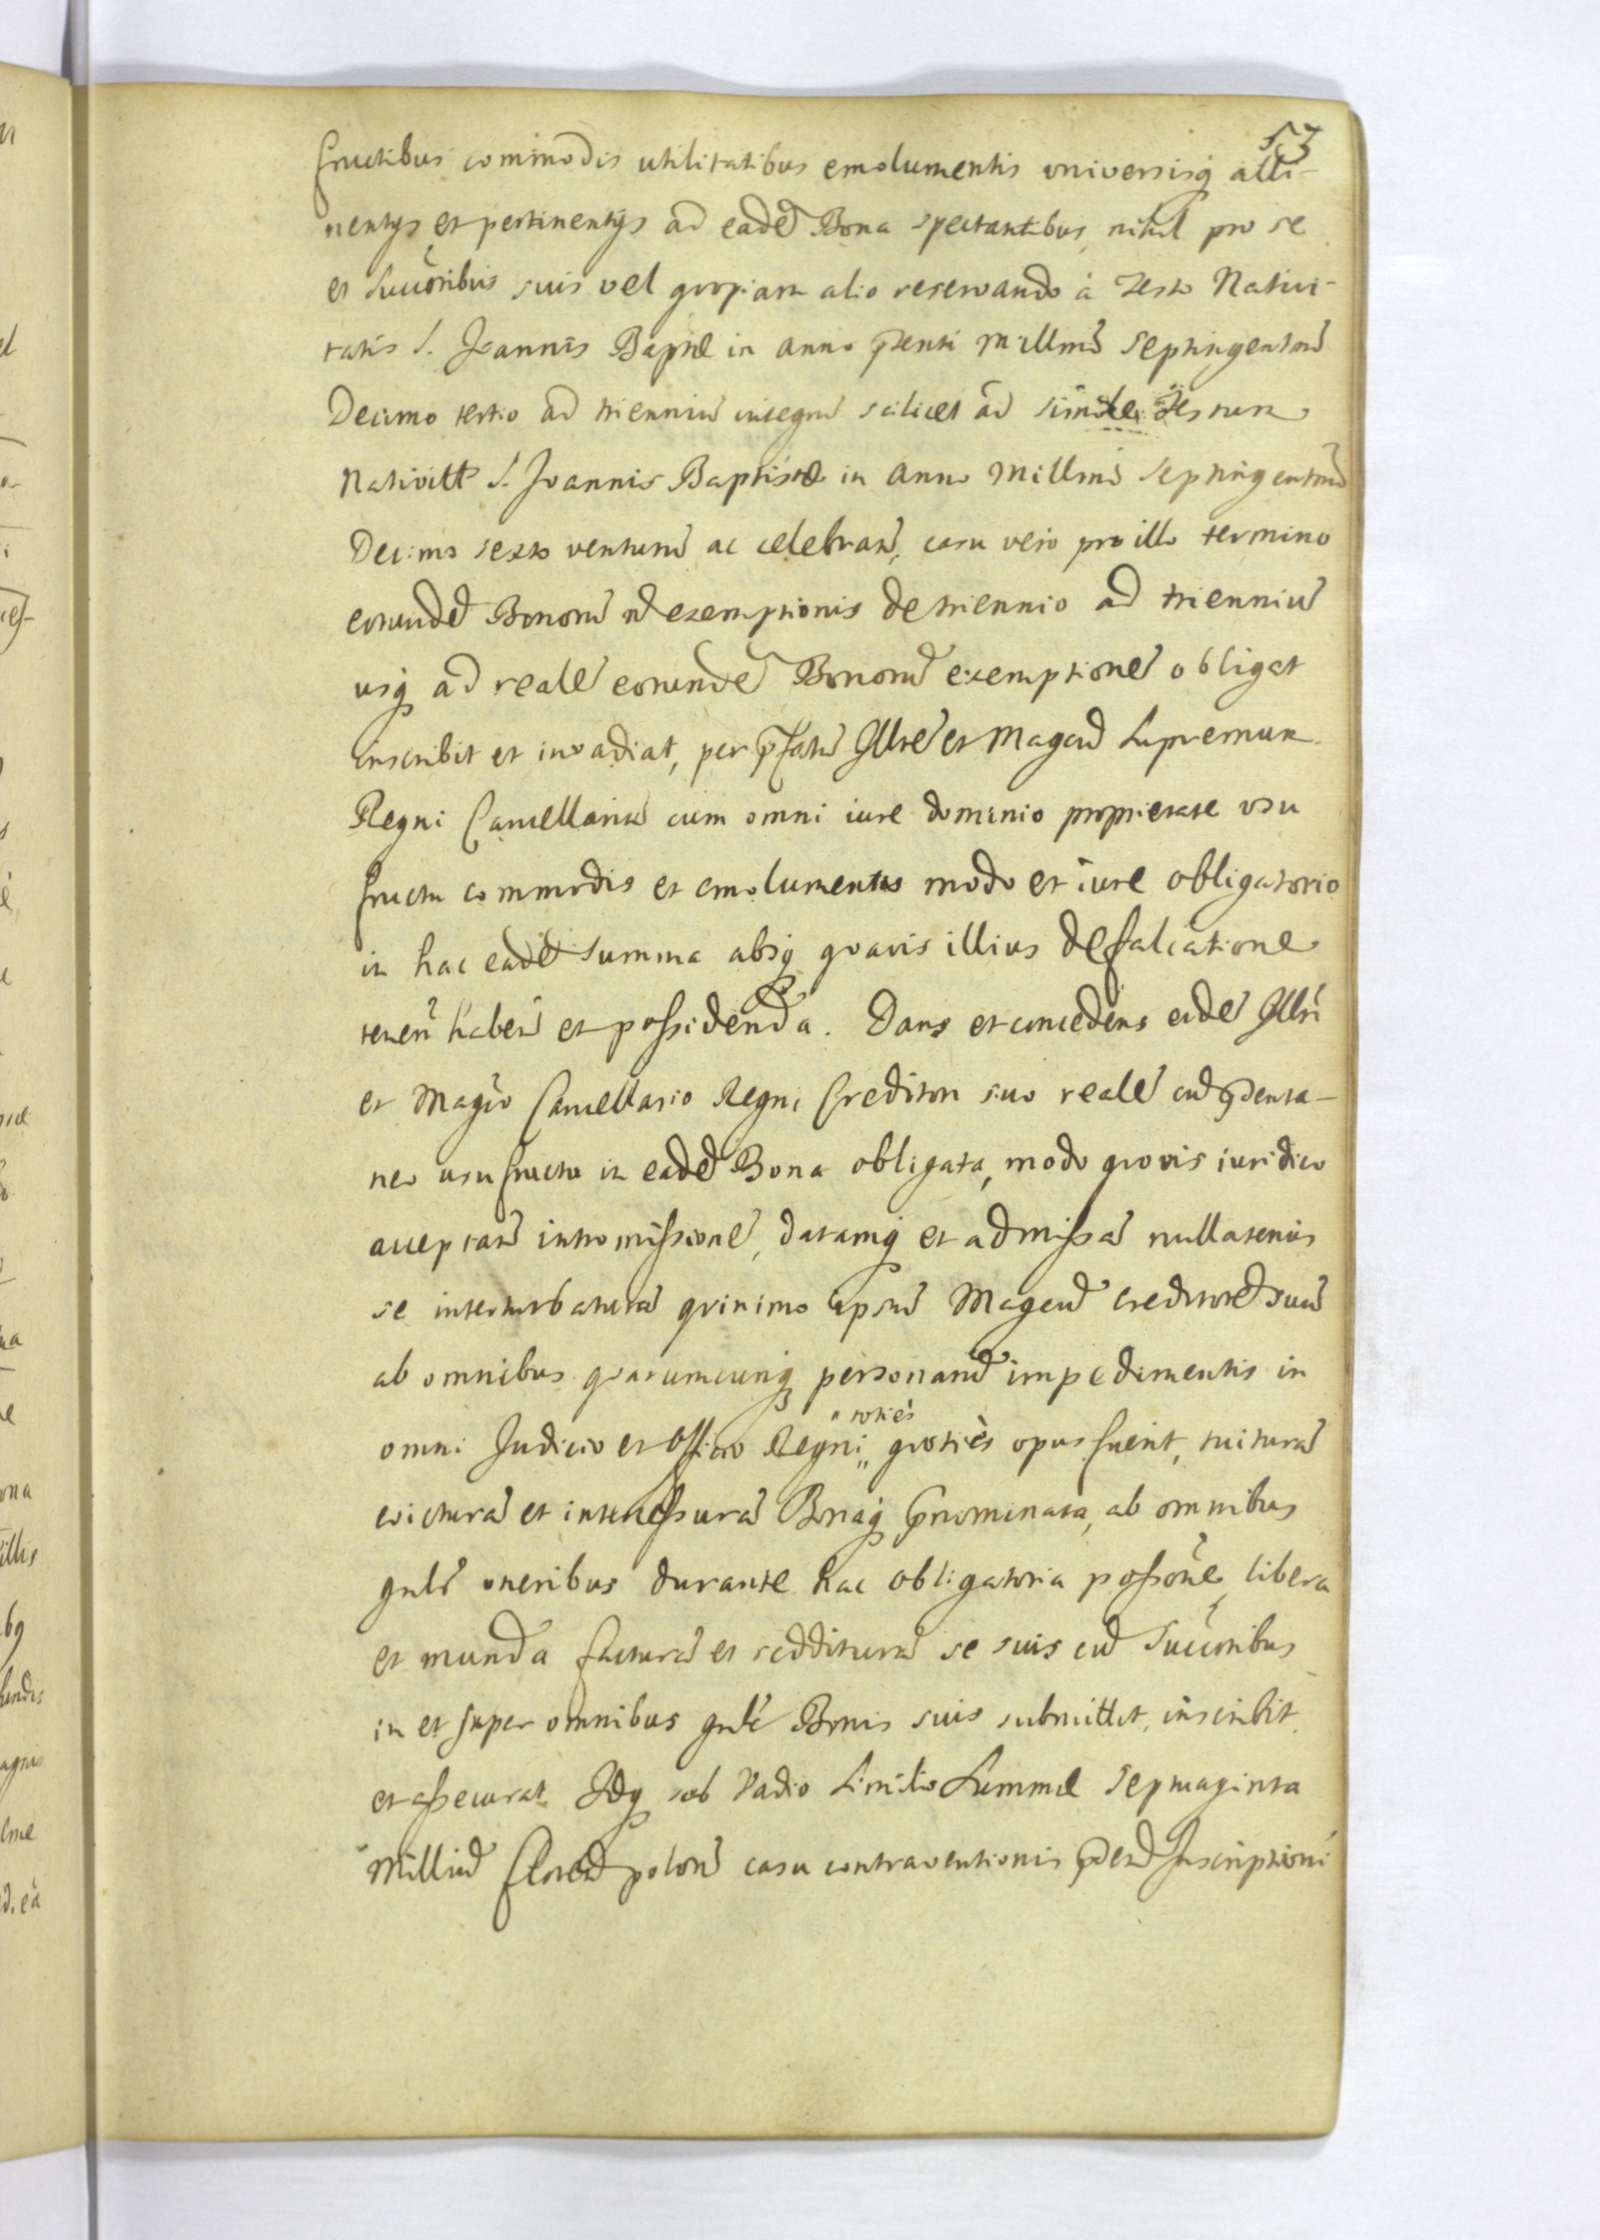 53
fructibus commodis utilitatibus emolumentis universisq₃ atti-
nentijs et pertinentijs ad eadē Bona spectantibus, nihil pro se
et Succ̄oribus suis vel quopiam alio reservando à Festo Nativi-
tatis S. Joannis Bapt̄æ in anno p̄senti Millm̄o Septingentm̄o
Decimo tertio ad trienniū integrū scilicet ad simile Festum
Nativitt S. Joannis Baptistæ in anno Millm̄o Septingentm̄o
Decimo sexto venturū ac celebran̄, casu vero pro illo termino
eorundē Bonorū n̄ exemptionis de triennio ad trienniū
usq₃ ad realē eorundē Bonorū exemptionē obligat
inscribit et invadiat, per p̄fatū Illr̄ē et Magcū Supremum
Regni Cancellariū cum omni iure dominio proprietate usu
fructu commodis et emolumentis modo et iure obligatorio
in hac eadē summa absq₃ quavis illius defalcatione
tenen̄ haben̄ et possidenda. Dans et concedens eidē Illr̄i
et Magc̄o Cancellario Regni Creditori suo realē cū p̄senta-
neo usufructu in eadē Bona obligata, modo quovis iuridico
acceptan̄ intromissionē, datamq₃ et admissā nullatenus
se interturbaturā quinimo ipsū Magcū creditorē suū
ab omnibus quarumcunq₃ personarū impedimentis in
omni Judicio et Officio Regni " toties " quoties opus fuerit, tuiturā
evicturā et interessurā Bonaq₃ p̄nominata, ab omnibus
gnlr̄ oneribus durante hac obligatoria possōne, libera
et munda facturā et reddituā se suis cū Succ̄oribus
in et super omnibus gnlr̄ Bonis suis submittit, inscribit
et assecurat. Idq₃ sub Vadio similis Summæ Septuaginta
Milliū florenō polon̄ casu contraventionis p̄senti Inscriptioni